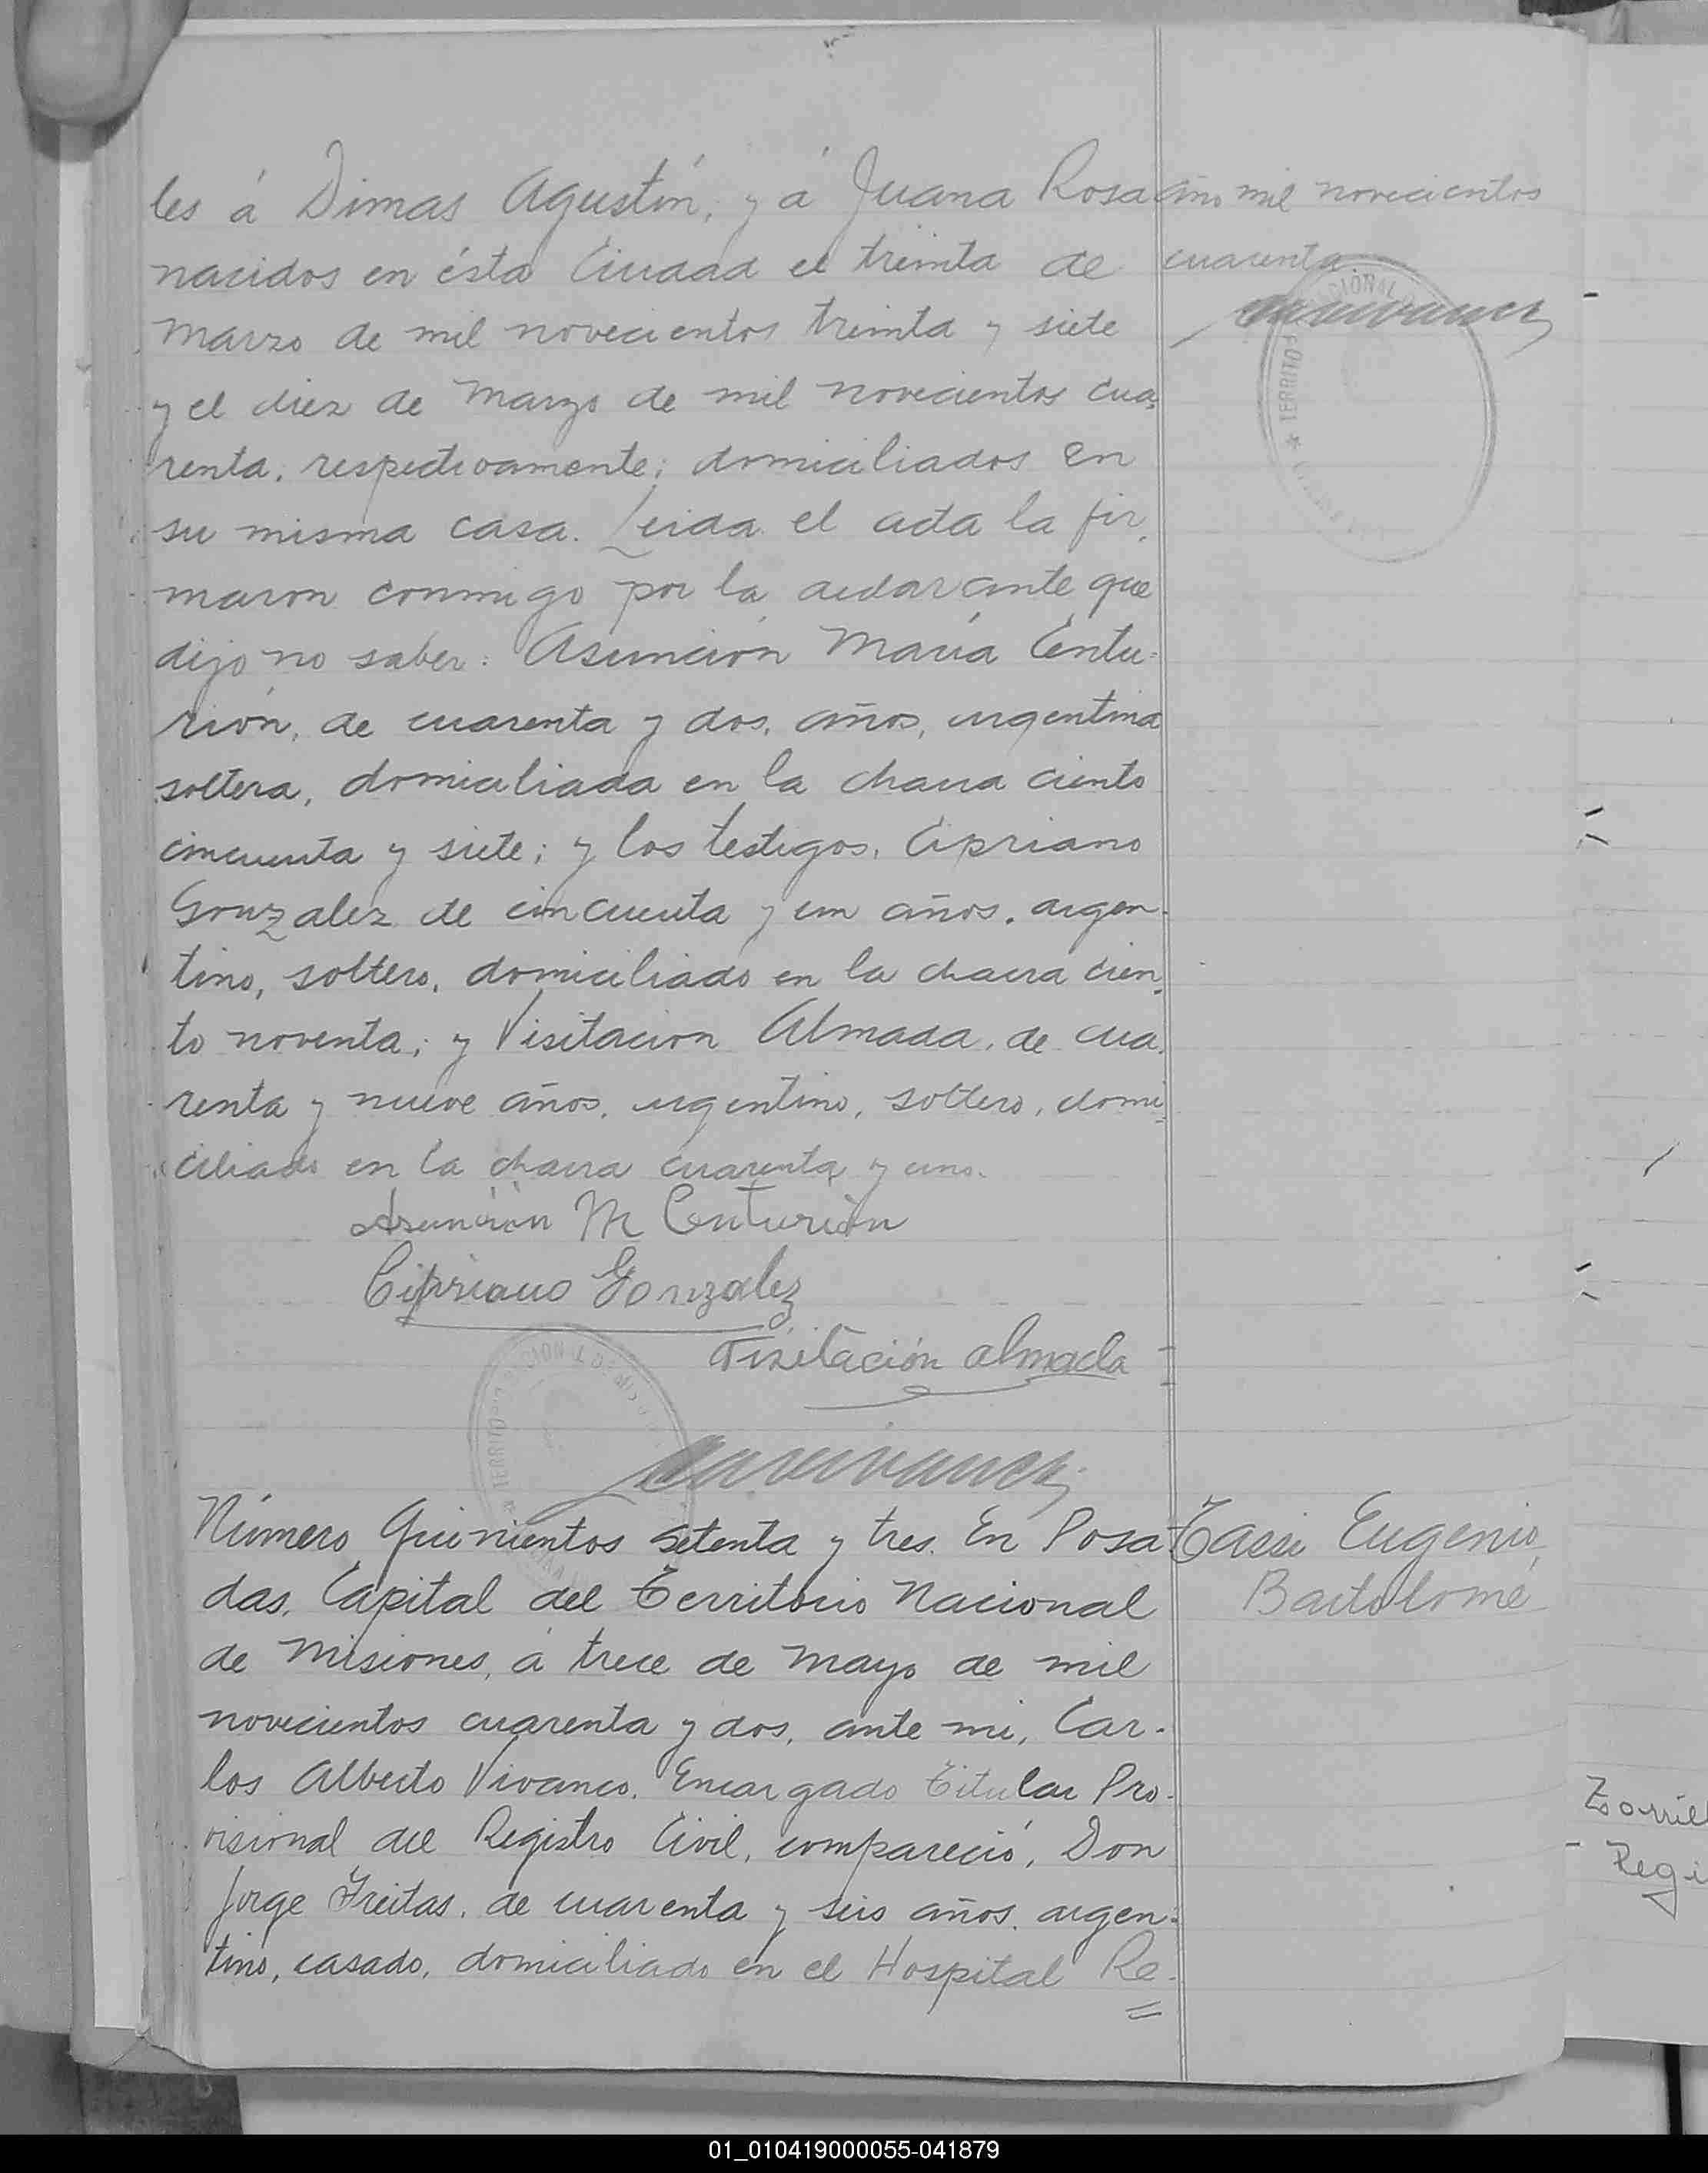 les á Dimas Agustín, y á Juana Rosa
nacidos en ésta Ciudad el treinta de
Marzo de mil novecientos treinta y siete
y el diez de Marzo de mil novecientos cua-
renta, respectivamente; domiciliados en
su misma casa. Leida el acta la fir-
maron conmigo por la declarante que
dijo no saber: Asunción María Centu-
rión, de cuarenta y dos, años, argentina
soltera, domiciliada en la chacra ciento
cincuenta y siete; y los testigos, Cipriano
Gonzalez de cincuenta y un años, argen-
tino, soltero, domiciliado en la chacra cien-
to noventa; y Visitacion Almada, de cua-
renta y nueve años, argentino, soltero, domi-
ciliado en la chacra cuarenta y uno.
Asunción M Centurión
Cipriano Gonzalez
Visitación Almada
año mil novecientos
cuarenta.
TERRITO
Número Quinientos setenta y tres. En Posa-
das, Capital del Territorio Nacional
de Misiones, á trece de Mayo de mil
novecientos cuarenta y dos, ante mi, Car-
los Alberto Vivanco, Encargado Titular Pro-
visional del Registro Civil, compareció, Don
Jorge Freitas, de cuarenta y seis años, argen-
tino, casado, domiciliado en el Hospital Re-
Eugenio
Bartolomé
Regi
01_010419000055-041879